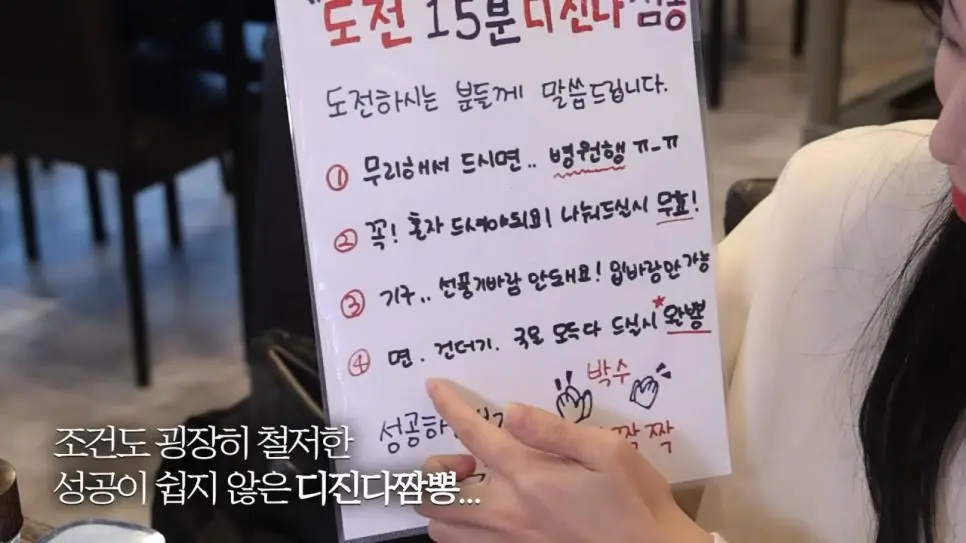 "도전 15분 디진다 짬뽕
도전하시는 분들께 말씀드립니다.
① 무리해서 드시면.. 병원행 ㅠ_ㅠ
② 꼭! 혼자 드셔야되요! 나눠드실시 무효!
③ 기구.. 선풍기바람 안돼요! 입바람만 가능
④ 면. 건더기. 국물 모두 다 드실시 *완뽕
박수
짝 짝
조건도 굉장히 철저한
성공이 쉽지 않은 디진다짬뽕...